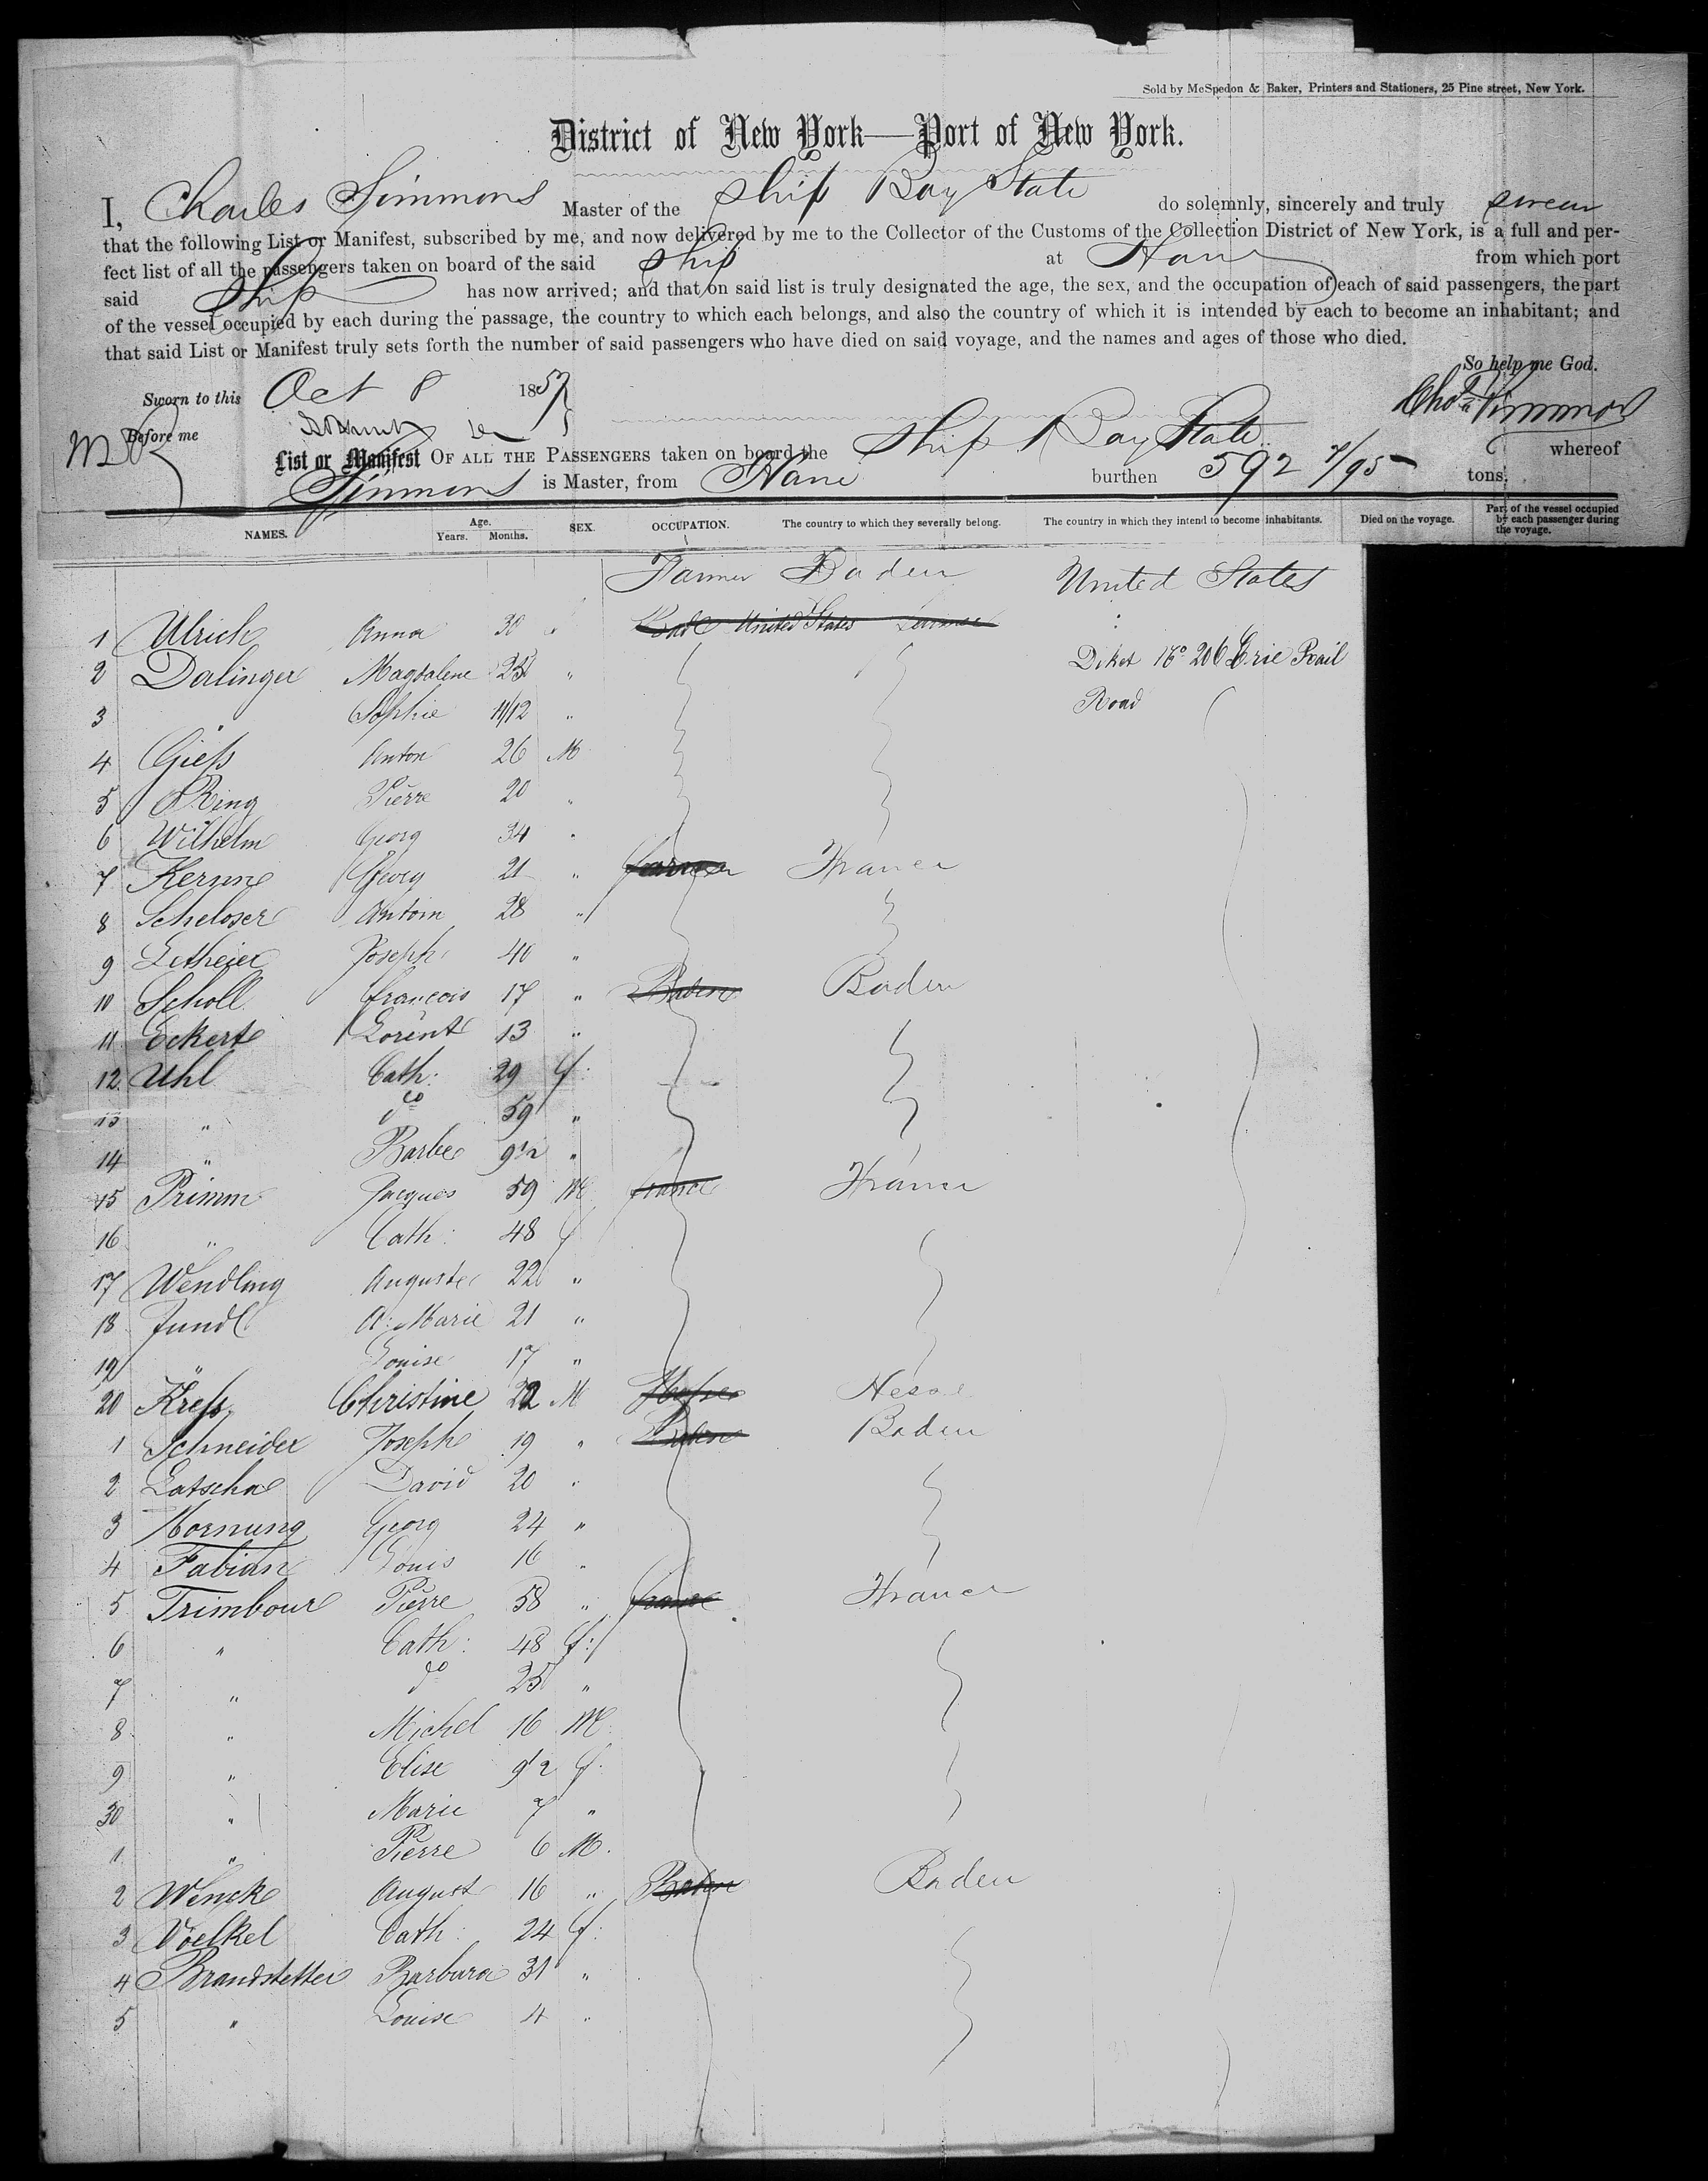 Sold by McSpedon & Baker, Printers and Stationers, 25 Pine street, New York.
District of New York—Port of New York.
I, Charles Simmons Master of the Ship Bay State do solemnly, sincerely and truly swear
that the following List or Manifest, subscribed by me, and now delivered by me to the Collector of the Customs of the Collection District of New York, is a full and per-
fect list of all the passengers taken on board of the said Ship at Havre from which port
said Ship has now arrived; and that on said list is truly designated the age, the sex, and the occupation of each of said passengers, the part
of the vessel occupied by each during the passage, the country to which each belongs, and also the country of which it is intended by each to become an inhabitant; and
that said List or Manifest truly sets forth the number of said passengers who have died on said voyage, and the names and ages of those who died.
So help me God.
Sworn to this Oct 8 1857
Chas Simmons
Before me
List or Manifest OF ALL THE PASSENGERS taken on board the Ship Bay State whereof
Simmons is Master, from Havre burthen 592 7/95 tons.
NAMES. Age. Years. Months. SEX. OCCUPATION. The country to which they severally belong. The country in which they intend to become inhabitants. Died on the voyage. Part of the vessel occupied by each passenger during the voyage.
Farmer Baden United States
1 Ulrich Anna 30 " United States
2 Dalinger Magdalene 25 " Diket No 206 Erie Rail
3 " Sophie 11/12 " Road
4 Giess Anton 26 M
5 Ring Pierre 20 "
6 Wilhelm Georg 34 "
7 Kernn Georg 21 " France
8 Scheloser Antoin 28 "
9 Letheier Joseph 40 "
10 Scholl François 17 " Baden Baden
11 Eckert Lorent 13 "
12 Uhl Cath: 29 f:
13 " do 59 "
14 " Barbe 9 1/2 "
15 Primm Jacques 59 M france France
16 " Cath: 48 f
17 Wendling Auguste 22 "
18 Jundt A: Marie 21 "
19 " Louise 17 "
20 Kress Christine 22 M Hesse
1 Schneider Joseph 19 " Baden Baden
2 Latscha David 20 "
3 Hornung Georg 24 "
4 Fabian Louis 16 "
5 Trimbour Pierre 58 " france France
6 " Cath: 48 f:
7 " do 25 "
8 " Michel 16 M:
9 " Elise 9 1/2 f:
30 " Marie 7 "
1 " Pierre 6 M.
2 Wencke August 16 " Baden Baden
3 Voelkel Cath: 24 f:
4 Brandstetter Barbara 31 "
5 " Louise 4 "